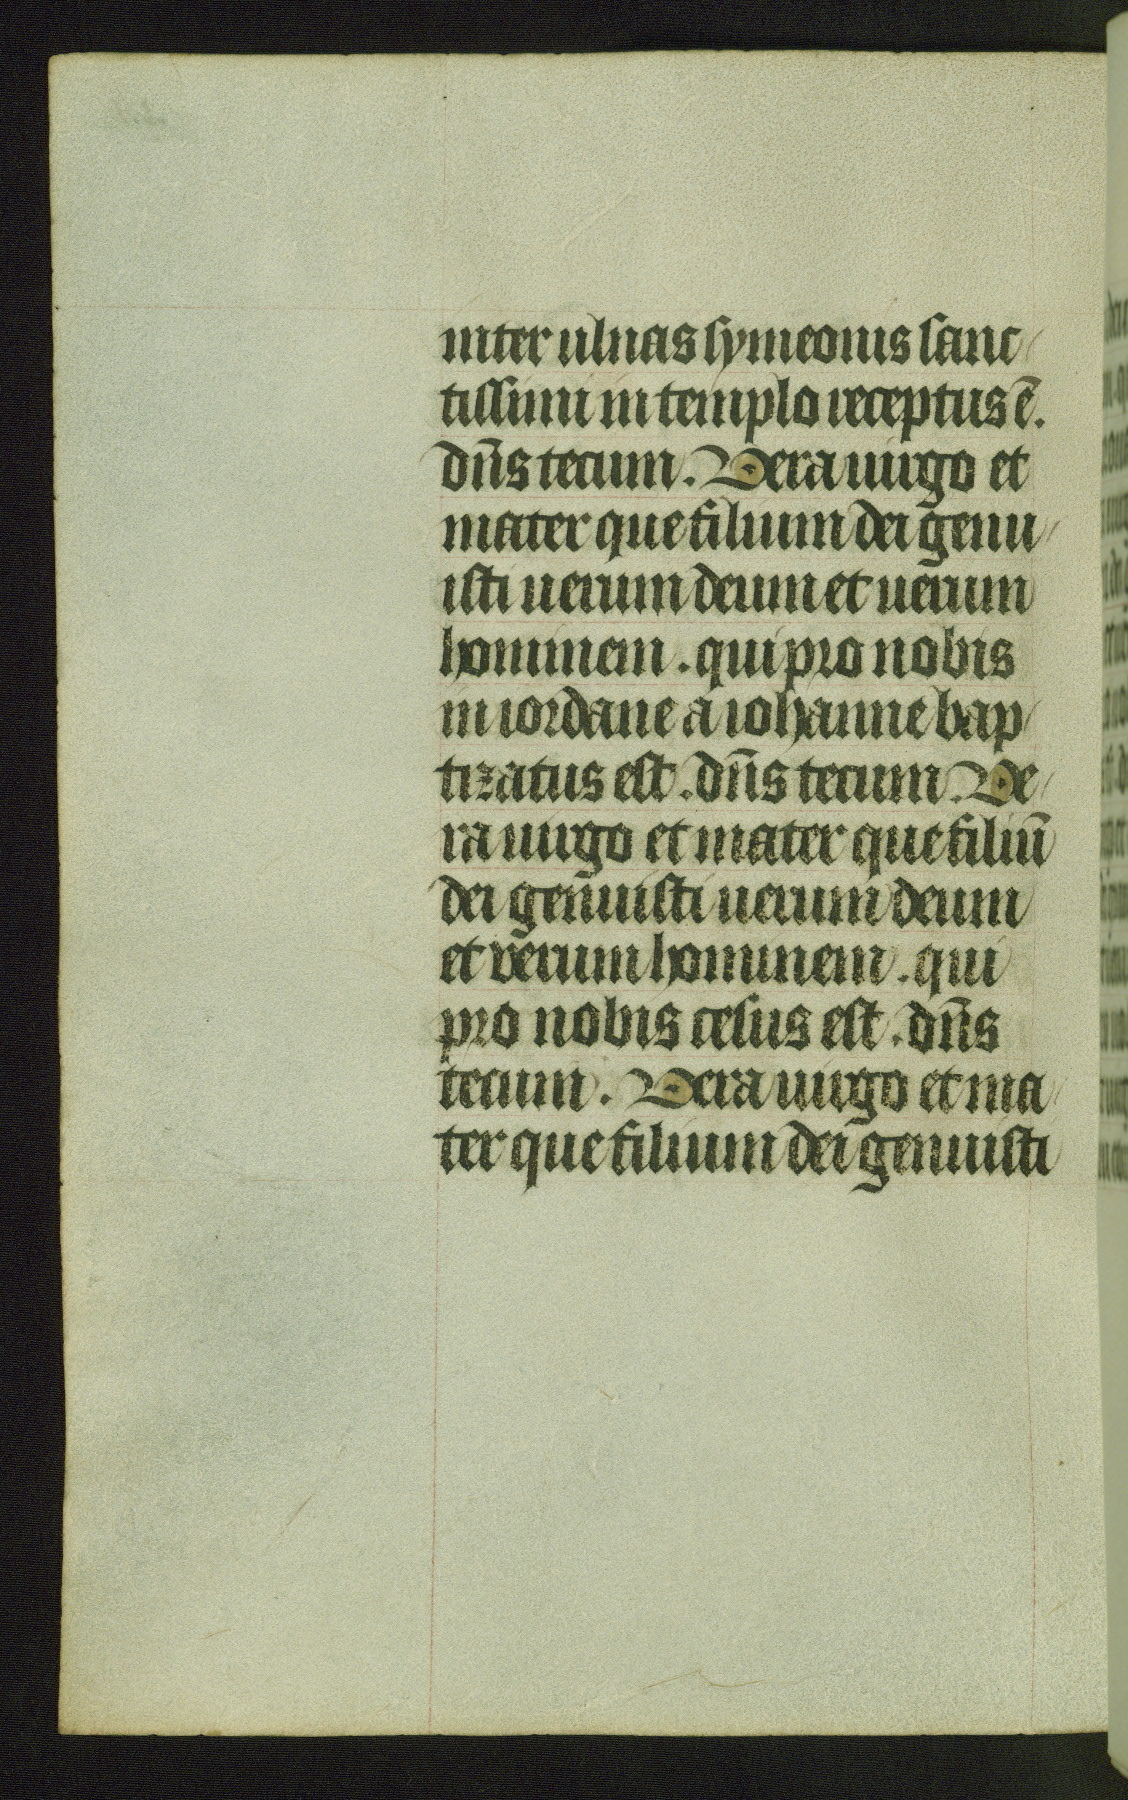 inter ulnas symeonis sanc
tissimi in templo receptus ē.
dn̄s tecum. Vera uirgo et
mater que filium dei genu
isti uerum deum et uerum
hominem. qui pro nobis
in iordane a iohanne bap
tizatus est. dn̄s tecum. Ve
ra uirgo et mater que filiū
dei genuisti uerum deum
et verum hominem. qui
pro nobis cesus est. dn̄s
tecum. Vera uirgo et ma
ter que filium dei genuisti